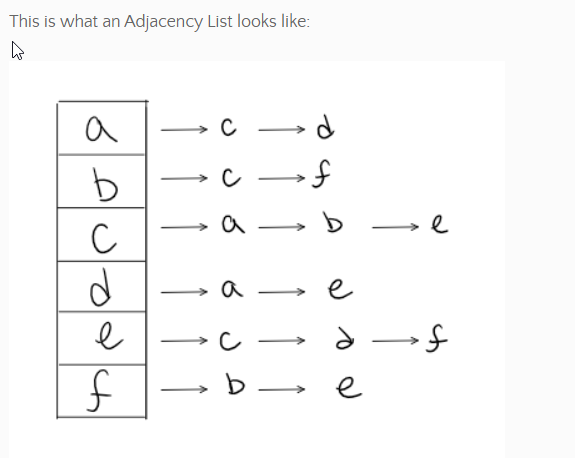 This is what an Adjacency List looks like:
a → c → d
b → c → f
c → a → b → e
d → a → e
e → c → d → f
f → b → e